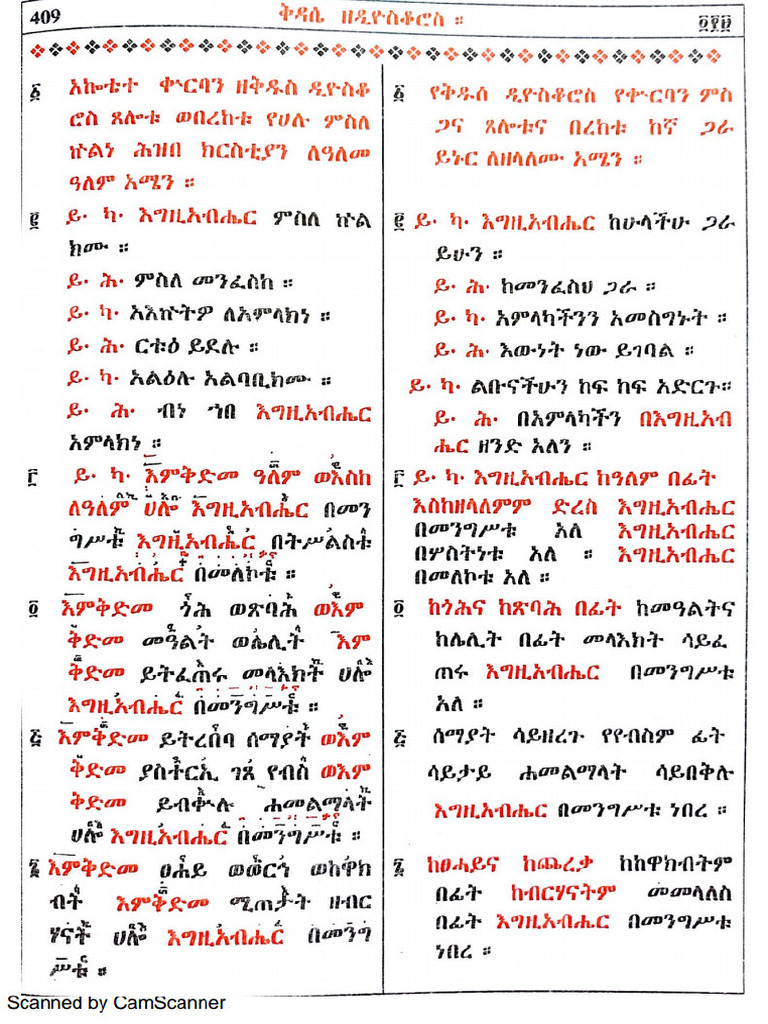 409
ቅዳሴ ዘዲዮስቆሮስ ።
፩ አኰቴተ ቍርባን ዘቅዱስ ዲዮስቆ
ሮስ ጸሎቱ ወበረከቱ የሀሉ ምስለ
ኵልነ ሕዝበ ክርስቲያን ለዓለመ
ዓለም አሜን ።
፪ ይ· ካ· እግዚአብሔር ምስለ ኵል
ክሙ ።
ይ· ሕ· ምስለ መንፈስከ ።
ይ· ካ· አእኵትዎ ለአምላክነ ።
ይ· ሕ· ርቱዕ ይደሉ ።
ይ· ካ· አልዕሉ አልባቢክሙ ።
ይ· ሕ· ብነ ኀበ እግዚአብሔር
አምላክነ ።
፫ ይ· ካ· እምቅድመ ዓለም ወእስከ
ለዓለም ሀሎ እግዚአብሔር በመን
ግሥቱ እግዚአብሔር በትሥልስቱ
እግዚአብሔር በመለኮቱ ።
፬ እምቅድመ ጎሕ ወጽባሕ ወእም
ቅድመ መዓልት ወሌሊት እም
ቅድመ ይትፈጠሩ መላእክት ሀሎ
እግዚአብሔር በመንግሥቱ ።
፭ እምቅድመ ይትረበባ ሰማያት ወእም
ቅድመ ያስተርኢ ገጸ የብስ ወእም
ቅድመ ይብቍሉ ሐመልማላት
ሀሎ እግዚአብሔር በመንግሥቱ ።
፮ እምቅድመ ፀሐይ ወወርኅ ወከዋክ
ብት እምቅድመ ሚጠታት ዘብር
ሃናት ሀሎ እግዚአብሔር በመንግ
ሥቱ ።
፩ የቅዱስ ዲዮስቆሮስ የቍርባን ምስ
ጋና ጸሎቱና በረከቱ ከኛ ጋራ
ይኑር ለዘላለሙ አሜን ።
፪ ይ· ካ· እግዚአብሔር ከሁላችሁ ጋራ
ይሁን ።
ይ· ሕ· ከመንፈስህ ጋራ ።
ይ· ካ· አምላካችንን አመስግኑት ።
ይ· ሕ· እውነት ነው ይገባል ።
ይ· ካ· ልቡናችሁን ከፍ ከፍ አድርጉ።
ይ· ሕ· በአምላካችን በእግዚአብ
ሔር ዘንድ አለን ።
፫ ይ· ካ· እግዚአብሔር ከዓለም በፊት
እስከዘላለምም ድረስ እግዚአብሔር
በመንግሥቱ አለ እግዚአብሔር
በሦስትነቱ አለ ። እግዚአብሔር
በመለኮቱ አለ ።
፬ ከጎሕና ከጽባሕ በፊት ከመዓልትና
ከሌሊት በፊት መላእክት ሳይፈ
ጠሩ እግዚአብሔር በመንግሥቱ
አለ ።
፭ ሰማያት ሳይዘረጉ የየብስም ፊት
ሳይታይ ሐመልማላት ሳይበቅሉ
እግዚአብሔር በመንግሥቱ ነበረ ።
፮ ከፀሓይና ከጨረቃ ከከዋክብትም
በፊት ከብርሃናትም መመላለስ
በፊት እግዚአብሔር በመንግሥቱ
ነበረ ።
Scanned by CamScanner